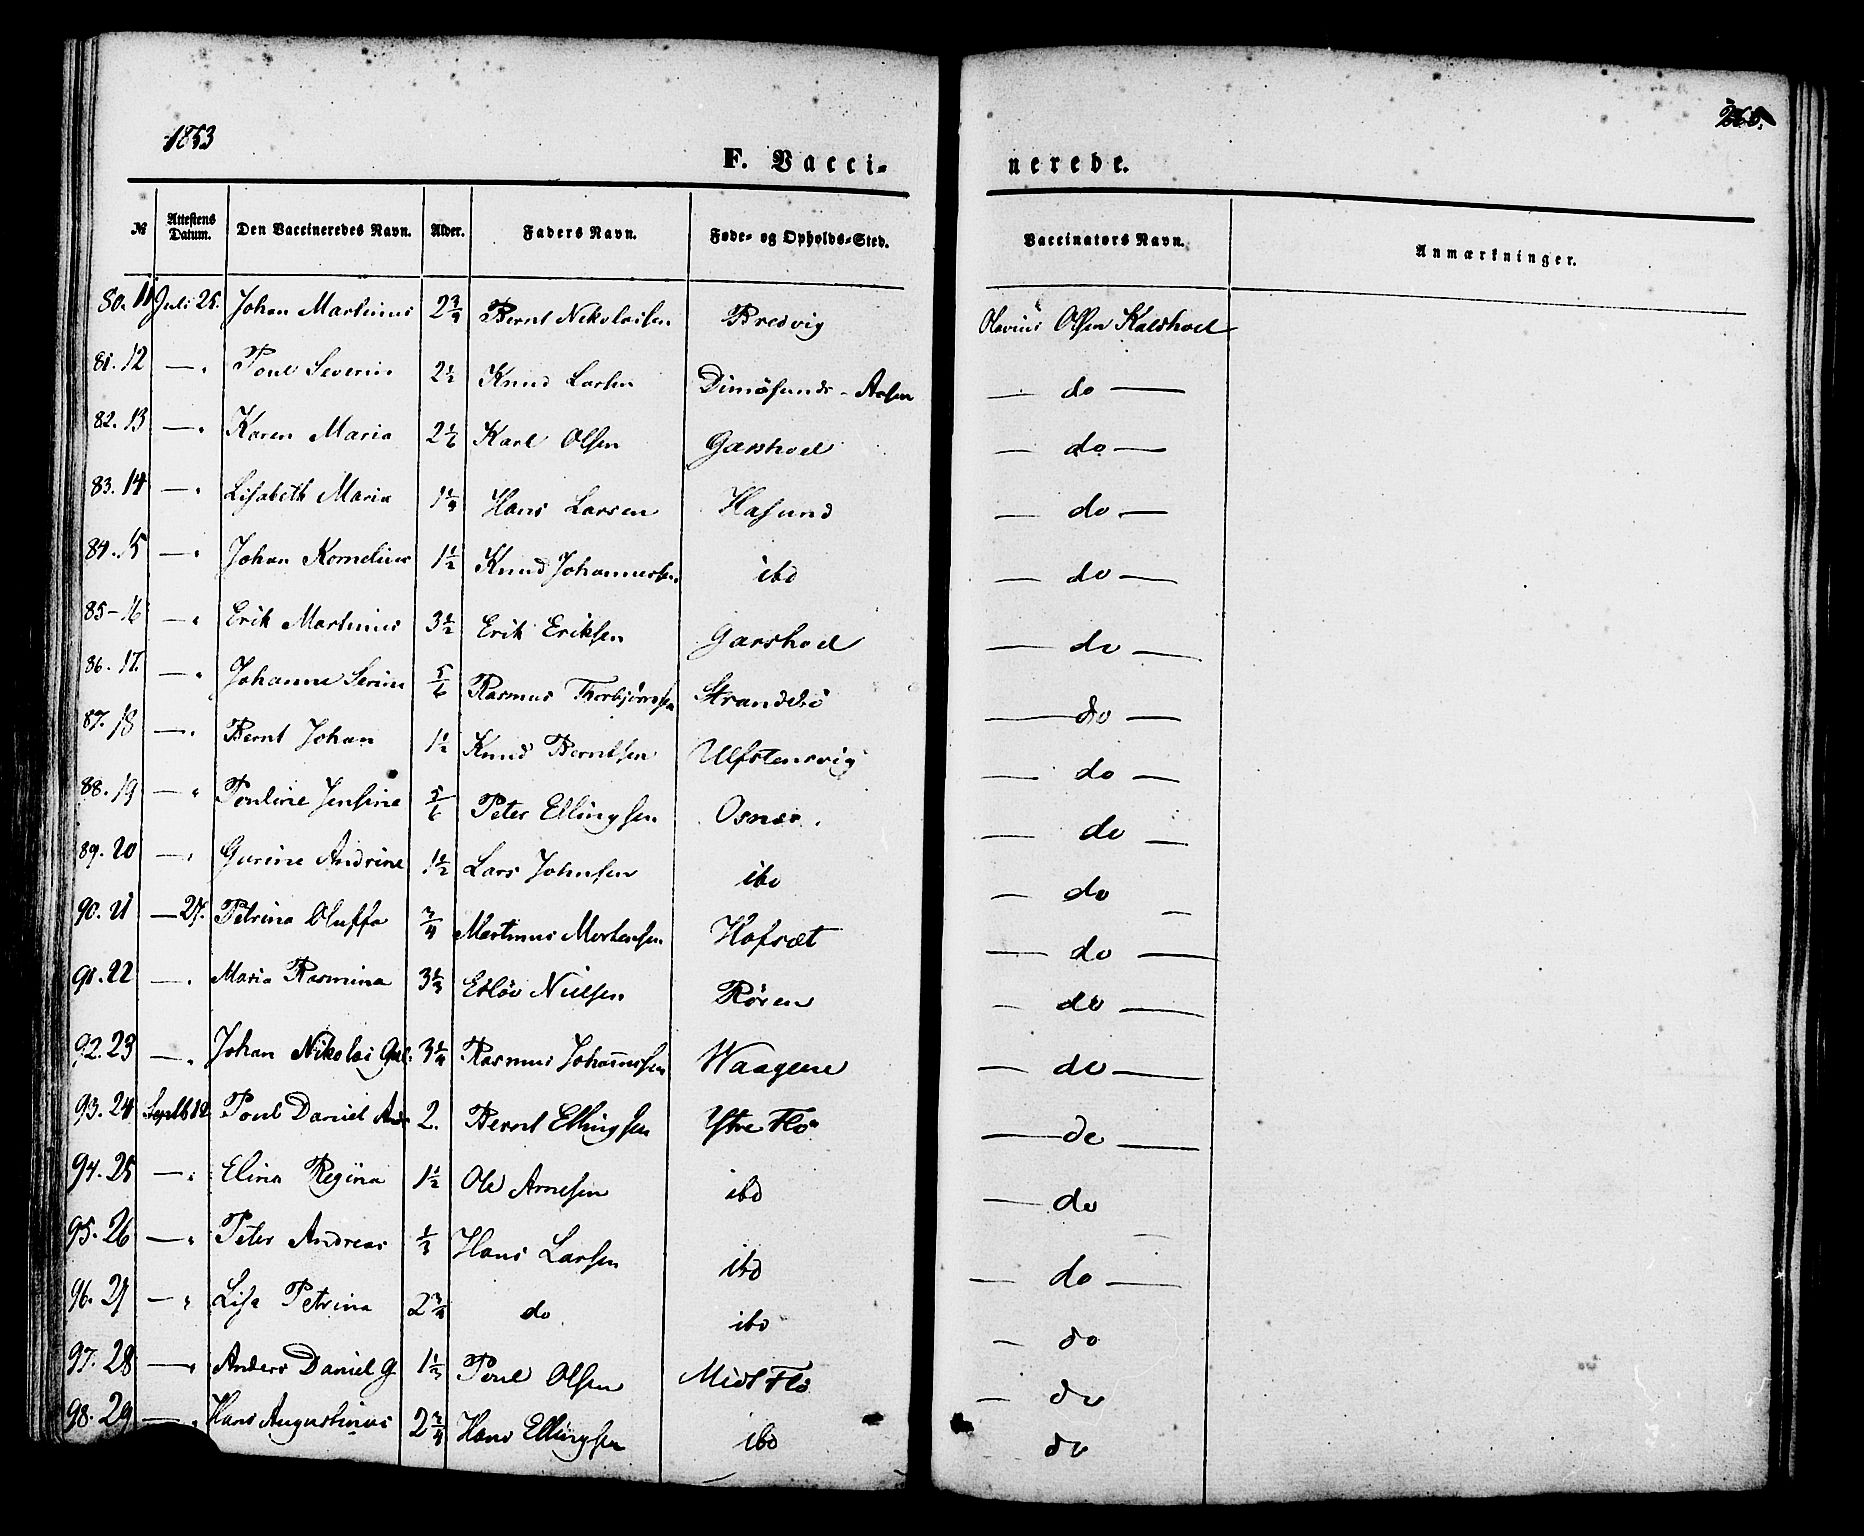 1853
F. Vacci-nerede.
№ | Attestens Datum. | Den Vaccineredes Navn. | Alder. | Faders Navn. | Føde- og Opholds-Sted. | Vaccinators Navn. | Anmærkninger.
80. 11 | Juli 25. | Johan Martinus | 2 3/4 | Bernt Nikolaisen | Bredvig | Olavius Olsen Kaldhoel
81. 12 | — " | Poul Severin | 2 1/2 | Knud Larsen | Dimøsunds-Aasen | — do —
82. 13 | — " | Karen Maria | 2 1/2 | Karl Olsen | Garshoel | — do —
83. 14 | — " | Lisabeth Maria | 1 1/4 | Hans Larsen | Hasund | — do —
84. 15 | — " | Johan Kornelius | 1 1/2 | Knud Johannessen | ibd | — do —
85 - 16 | — " | Erik Martinus | 3 1/2 | Erik Eriksen | Garshoel | — do —
86. 17. | — " | Johanne Serine | 5/6 | Rasmus Thorbjørnsen | Strandebø | — do —
87. 18 | — " | Bernt Johan | 1 1/2 | Knud Berntsen | Ulfstensvig | — do —
88. 19 | — " | Pouline Jensine | 5/6 | Peter Ellingsen | Osnes. | — do —
89. 20 | — " | Gurine Andrine | 1 1/2 | Lars Johnsen | ibd | — do —
90. 21 | — 27. | Petrina Oluffa | 3/4 | Martinus Mortensen | Hofsæt | — do —
91. 22 | — " | Maria Rasmina | 3 1/3 | Edløv Nielsen | Røren | — do —
92. 23 | — " | Johan Nikolai | 3 1/4 | Rasmus Johannessen | Waagene | — do —
93. 24 | Septb 12 | Poul Daniel And | 2. | Bernt Ellingsen | Ytre Flø | — do —
94. 25 | — " | Elina Regina | 1 1/2 | Ole Arnesen | ibd | — do —
95. 26 | — " | Peter Andreas | 1/3 | Hans Larsen | ibd | — do —
96. 27 | — " | Lisa Petrina | 2 3/4 | do | ibd | — do
97. 28 | — " | Anders Daniel G | 1 1/3 | Poul Olsen | Midt Flø | — do
98. 29 | — " | Hans Augustinus | 2 3/4 | Hans Ellingsen | ibd | do